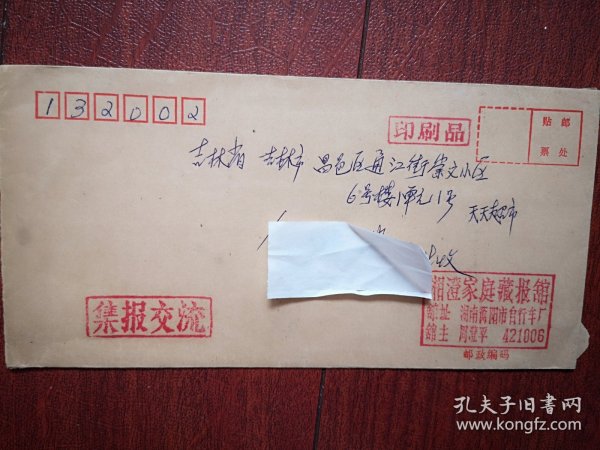 132002
印刷品
贴邮
票处
吉林省 吉林市 昌邑区通江街崇文小区
6号楼1单元1号 天天超市
收
集报交流
湘澄家庭藏报馆
馆址 湖南衡阳市自行车厂
馆主 周澄平 421006
邮政编码
孔夫子旧书网
www.kongfz.com